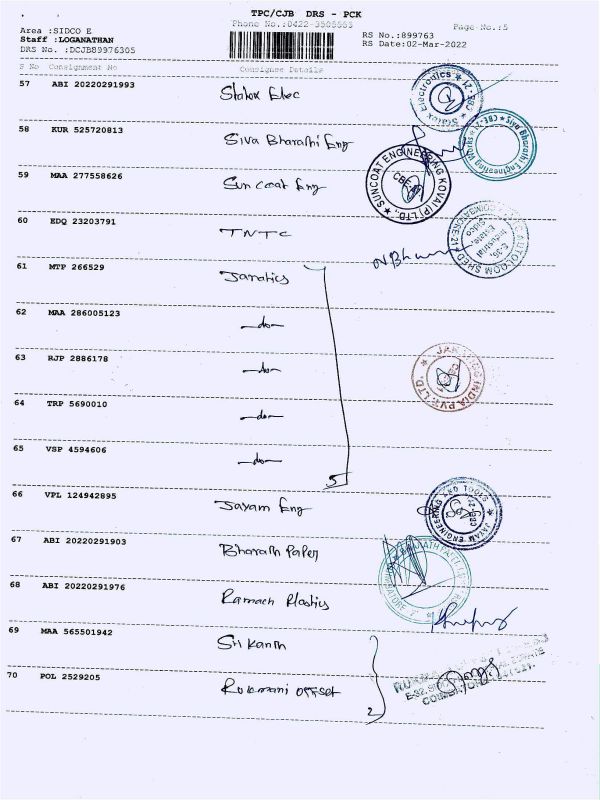 TPC/CJB DRS - PCK
Phone No.:0422-3505555
Page No.:5
Area :SIDCO E
Staff :LOGANATHAN
DRS No. :DCJB89976305
RS No.:899763
RS Date:02-Mar-2022
S No Consignment No Consignee Details
57 ABI 20220291993 Statox Elec
Statox Electronics
58 KUR 525720813 Siva Bharathi Eng
Siva Bharathi Engineering Works
59 MAA 277558626 Suncoat Eng
SUNCOAT ENGINEERING KOVAI (P) LTD.,
60 EDQ 23203791 TNTC
61 MTP 266529 Janatics
62 MAA 286005123 —do—
63 RJP 2886178 —do—
INDIA PVT. LTD.
64 TRP 5690010 —do—
65 VSP 4594606 —do—
5
66 VPL 124942895 Jayam Eng
67 ABI 20220291903 Bharath Paper
68 ABI 20220291976 Ramach Plastics
69 MAA 565501942 Sri Kanth
70 POL 2529205 Rukmani offset
2